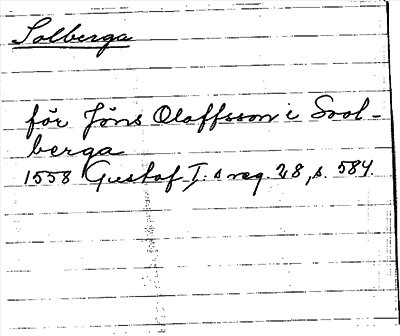 Solberga
för Jöns Olaffsson i Sool-
berga
1558 Gustaf I:s reg. 28, s. 584.